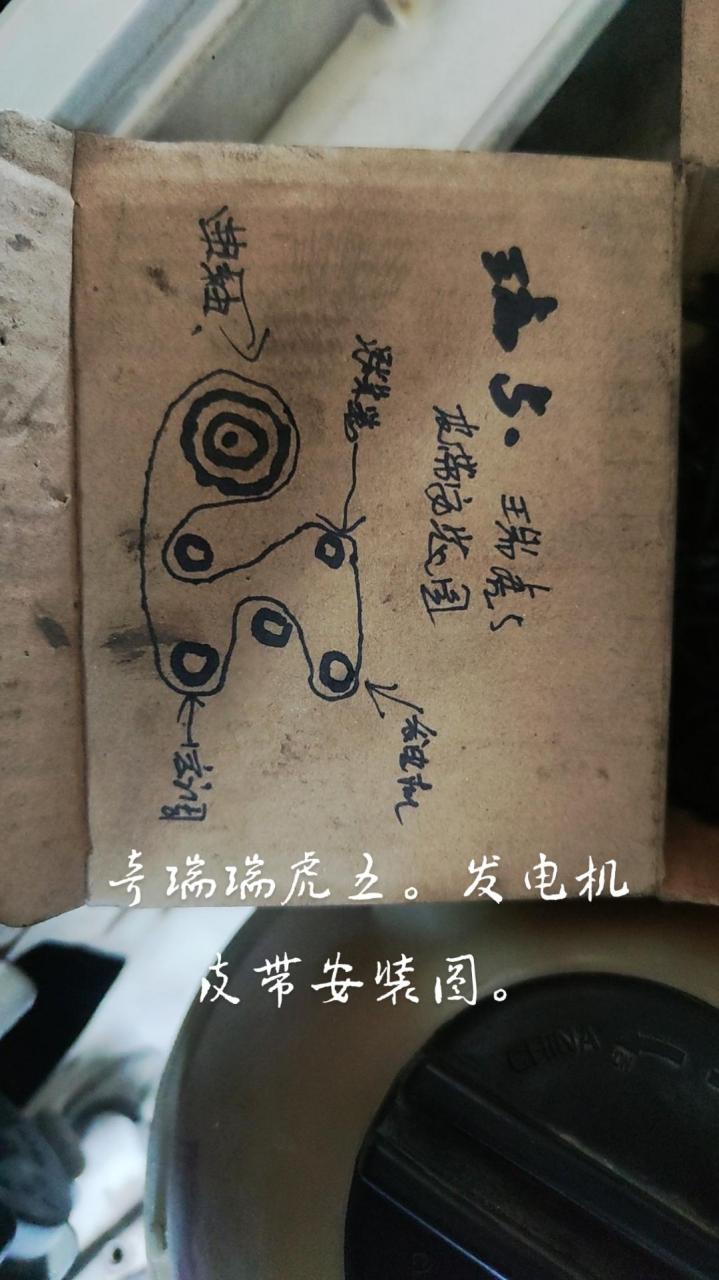 5.
瑞虎5
皮带安装图
曲轴
发电机
空调
奇瑞瑞虎五。发电机
皮带安装图。
CHINA